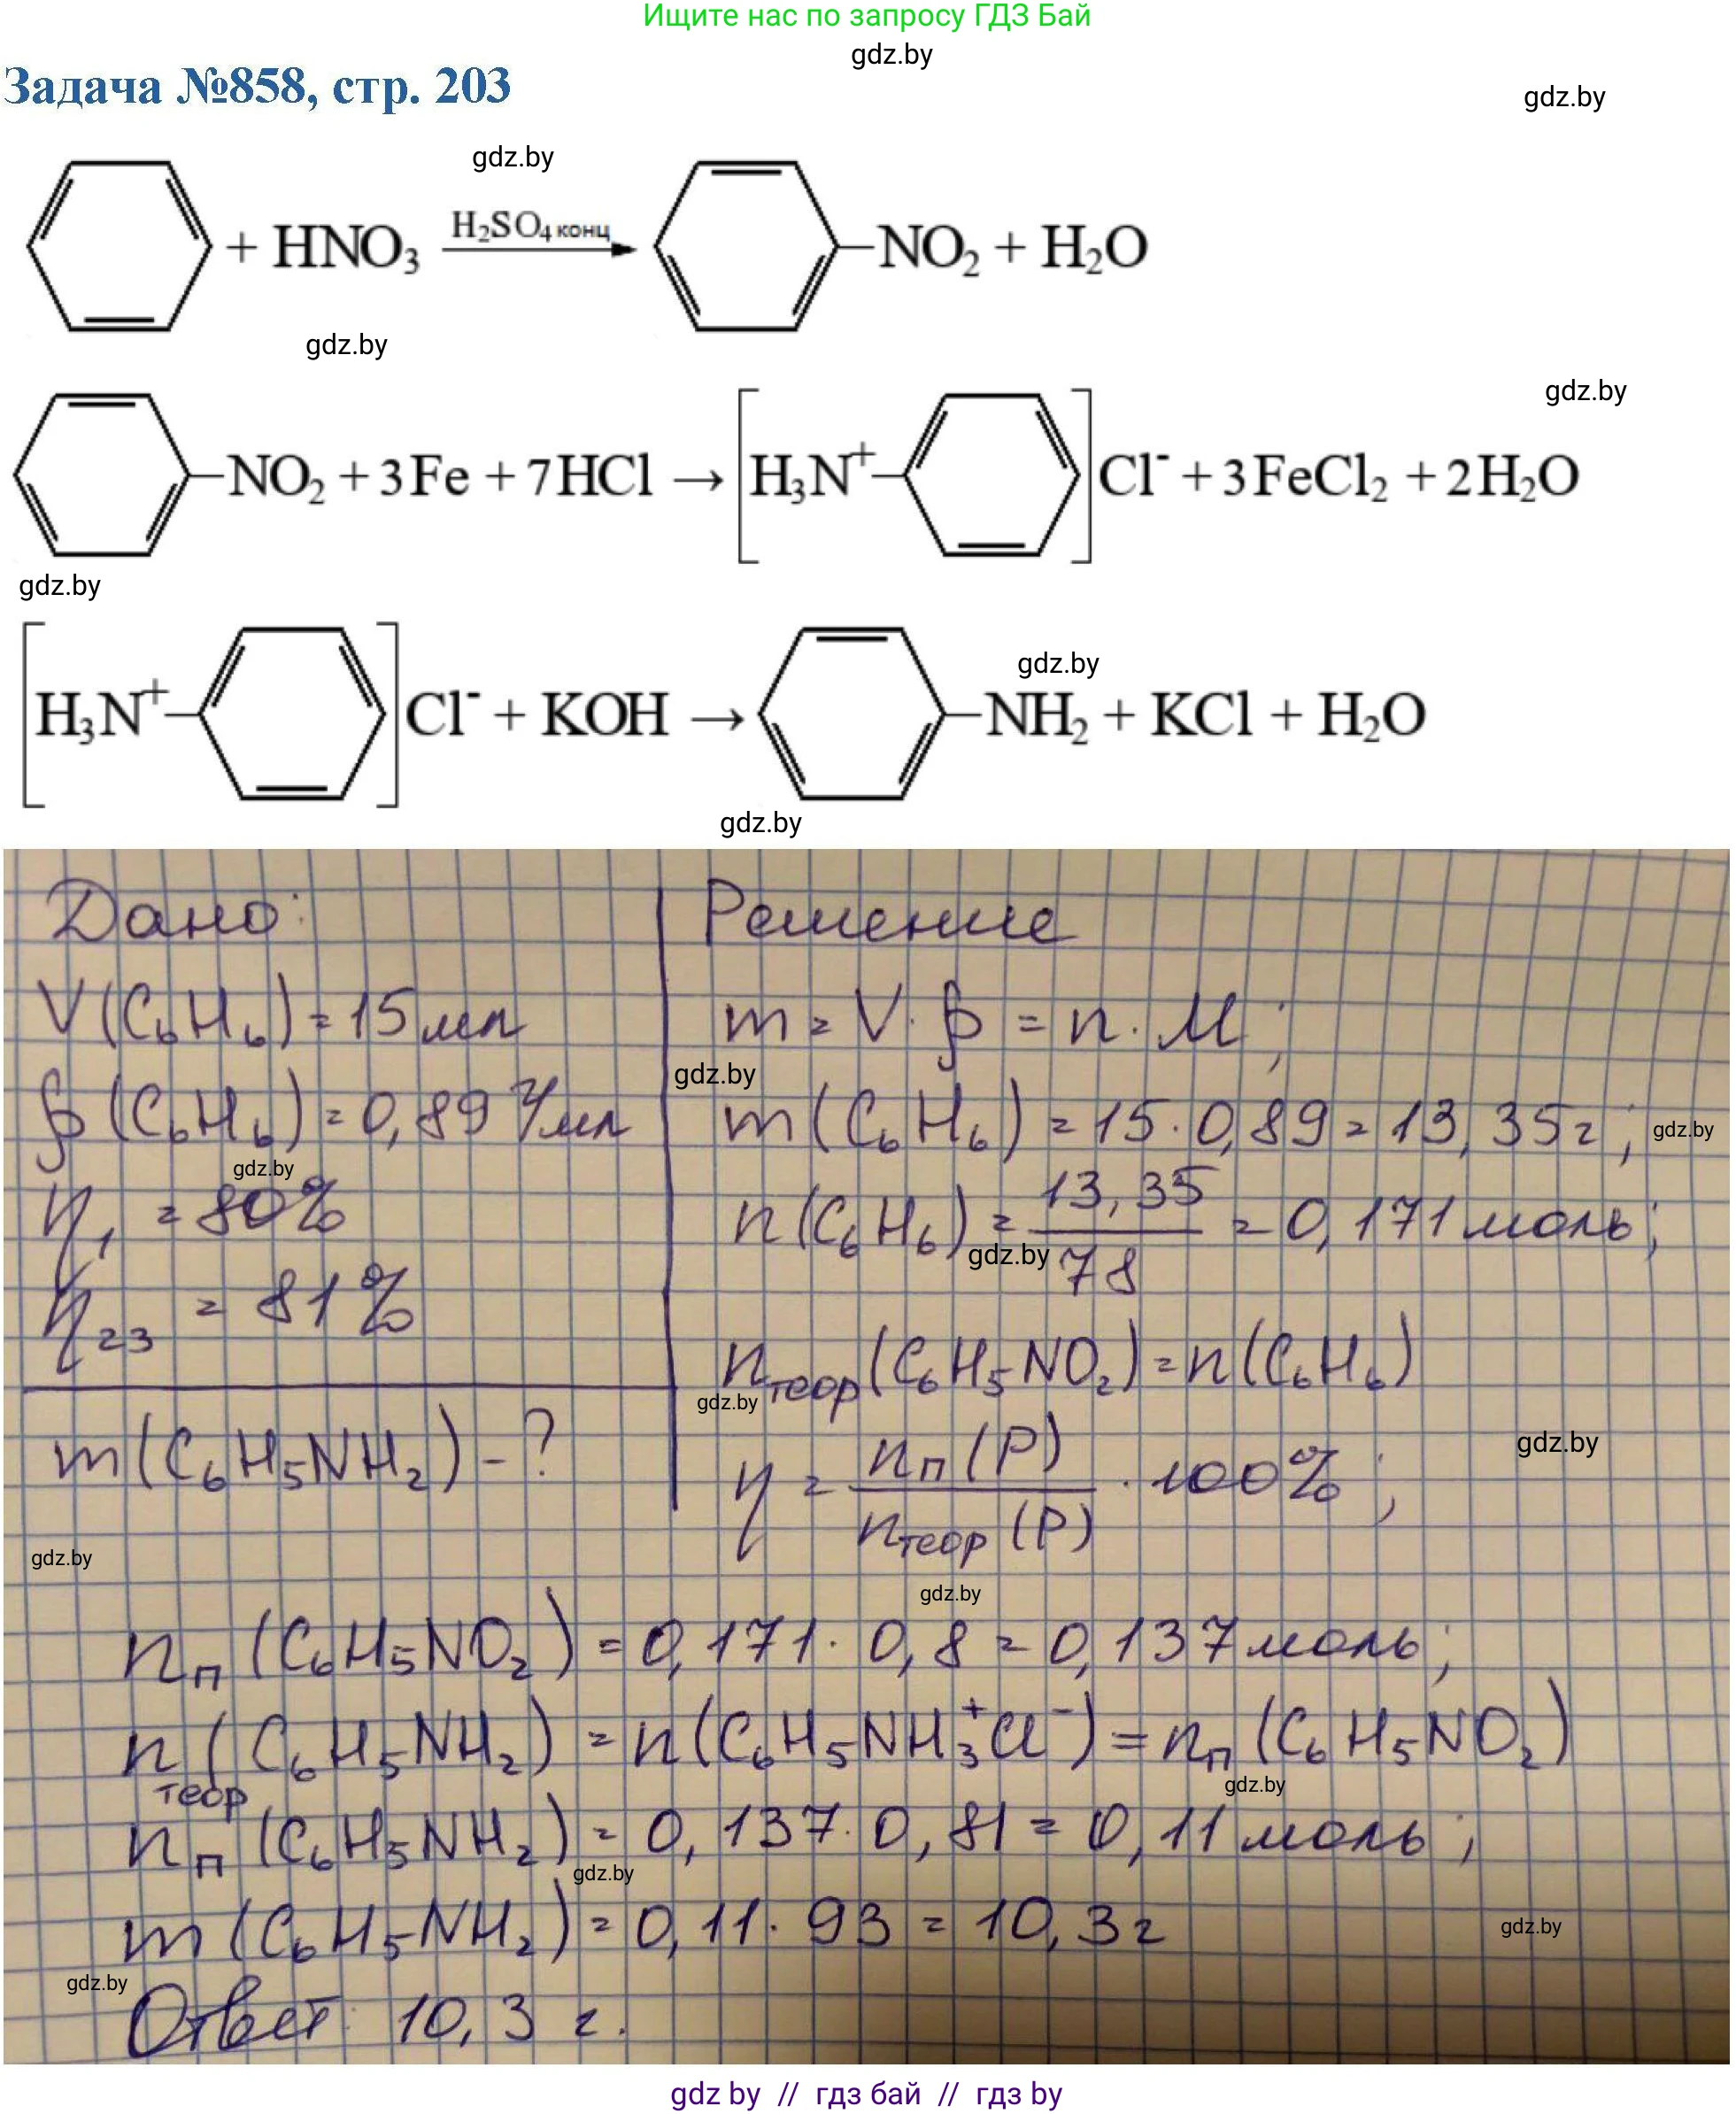 Ищите нас по запросу ГДЗ Бай
gdz.by
Задача №858, стр. 203
gdz.by
gdz.by
+ HNO₃ H₂SO₄ конц → NO₂ + H₂O
gdz.by
gdz.by
NO₂ + 3Fe + 7HCl → [H₃N⁺ ] Cl⁻ + 3FeCl₂ + 2H₂O
gdz.by
gdz.by
[H₃N⁺ ] Cl⁻ + KOH → NH₂ + KCl + H₂O
gdz.by
Дано:
V(C₆H₆) = 15 мл
ρ(C₆H₆) = 0,89 г/мл
gdz.by
η₁ = 80%
η₂₃ = 81%
m(C₆H₅NH₂) - ?
gdz.by
Решение
m = V · ρ = n · M;
gdz.by
m(C₆H₆) = 15 · 0,89 = 13,35 г;
gdz.by
n(C₆H₆) = 13,35 / 78 = 0,171 моль;
gdz.by
nтеор(C₆H₅NO₂) = n(C₆H₆)
gdz.by
η = nп(P) / nтеор(P) · 100%;
gdz.by
gdz.by
nп(C₆H₅NO₂) = 0,171 · 0,8 = 0,137 моль;
nтеор(C₆H₅NH₂) = n(C₆H₅NH₃⁺Cl⁻) = nп(C₆H₅NO₂)
gdz.by
nп(C₆H₅NH₂) = 0,137 · 0,81 = 0,11 моль;
gdz.by
m(C₆H₅NH₂) = 0,11 · 93 = 10,3 г
gdz.by
gdz.by
Ответ: 10,3 г.
gdz by // гдз бай // гдз by